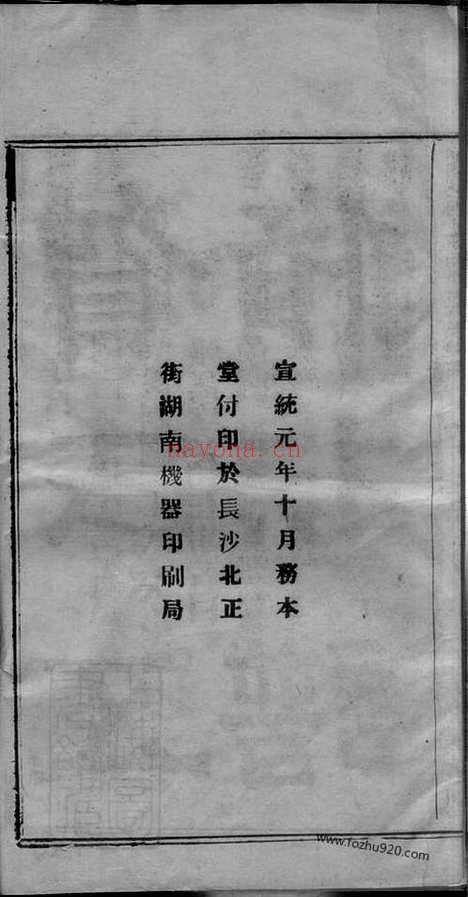 宣統元年十月務本
堂付印於長沙北正
街湖南機器印刷局
nayona.cn
www.fozhu920.com